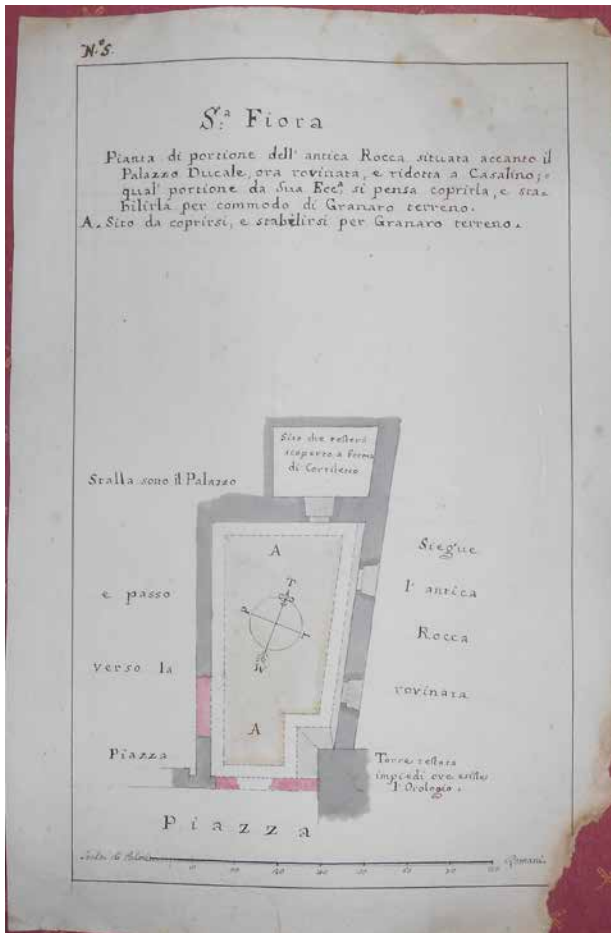 N.º 5.
S.ª Fiora
Pianta di portione dell' antica Rocca situata accanto il
Palazzo Ducale, ora rovinata, e ridotta a Casalino;
qual' portione da Sua Ecc.ª si pensa coprirla, e sta=
bilirla per commodo di Granaro terreno.
A. Sito da coprirsi, e stabilirsi per Granaro terreno.
Sito che resterà
scoperto a forma
di Cortileno
Stalla sotto il Palazzo
A
Siegue
e passo
l' antica
Rocca
verso la
rovinata
A
Piazza
Torre restata
impiedi ove esiste
l' Orologio.
Piazza
Scala di Palmi
Romani